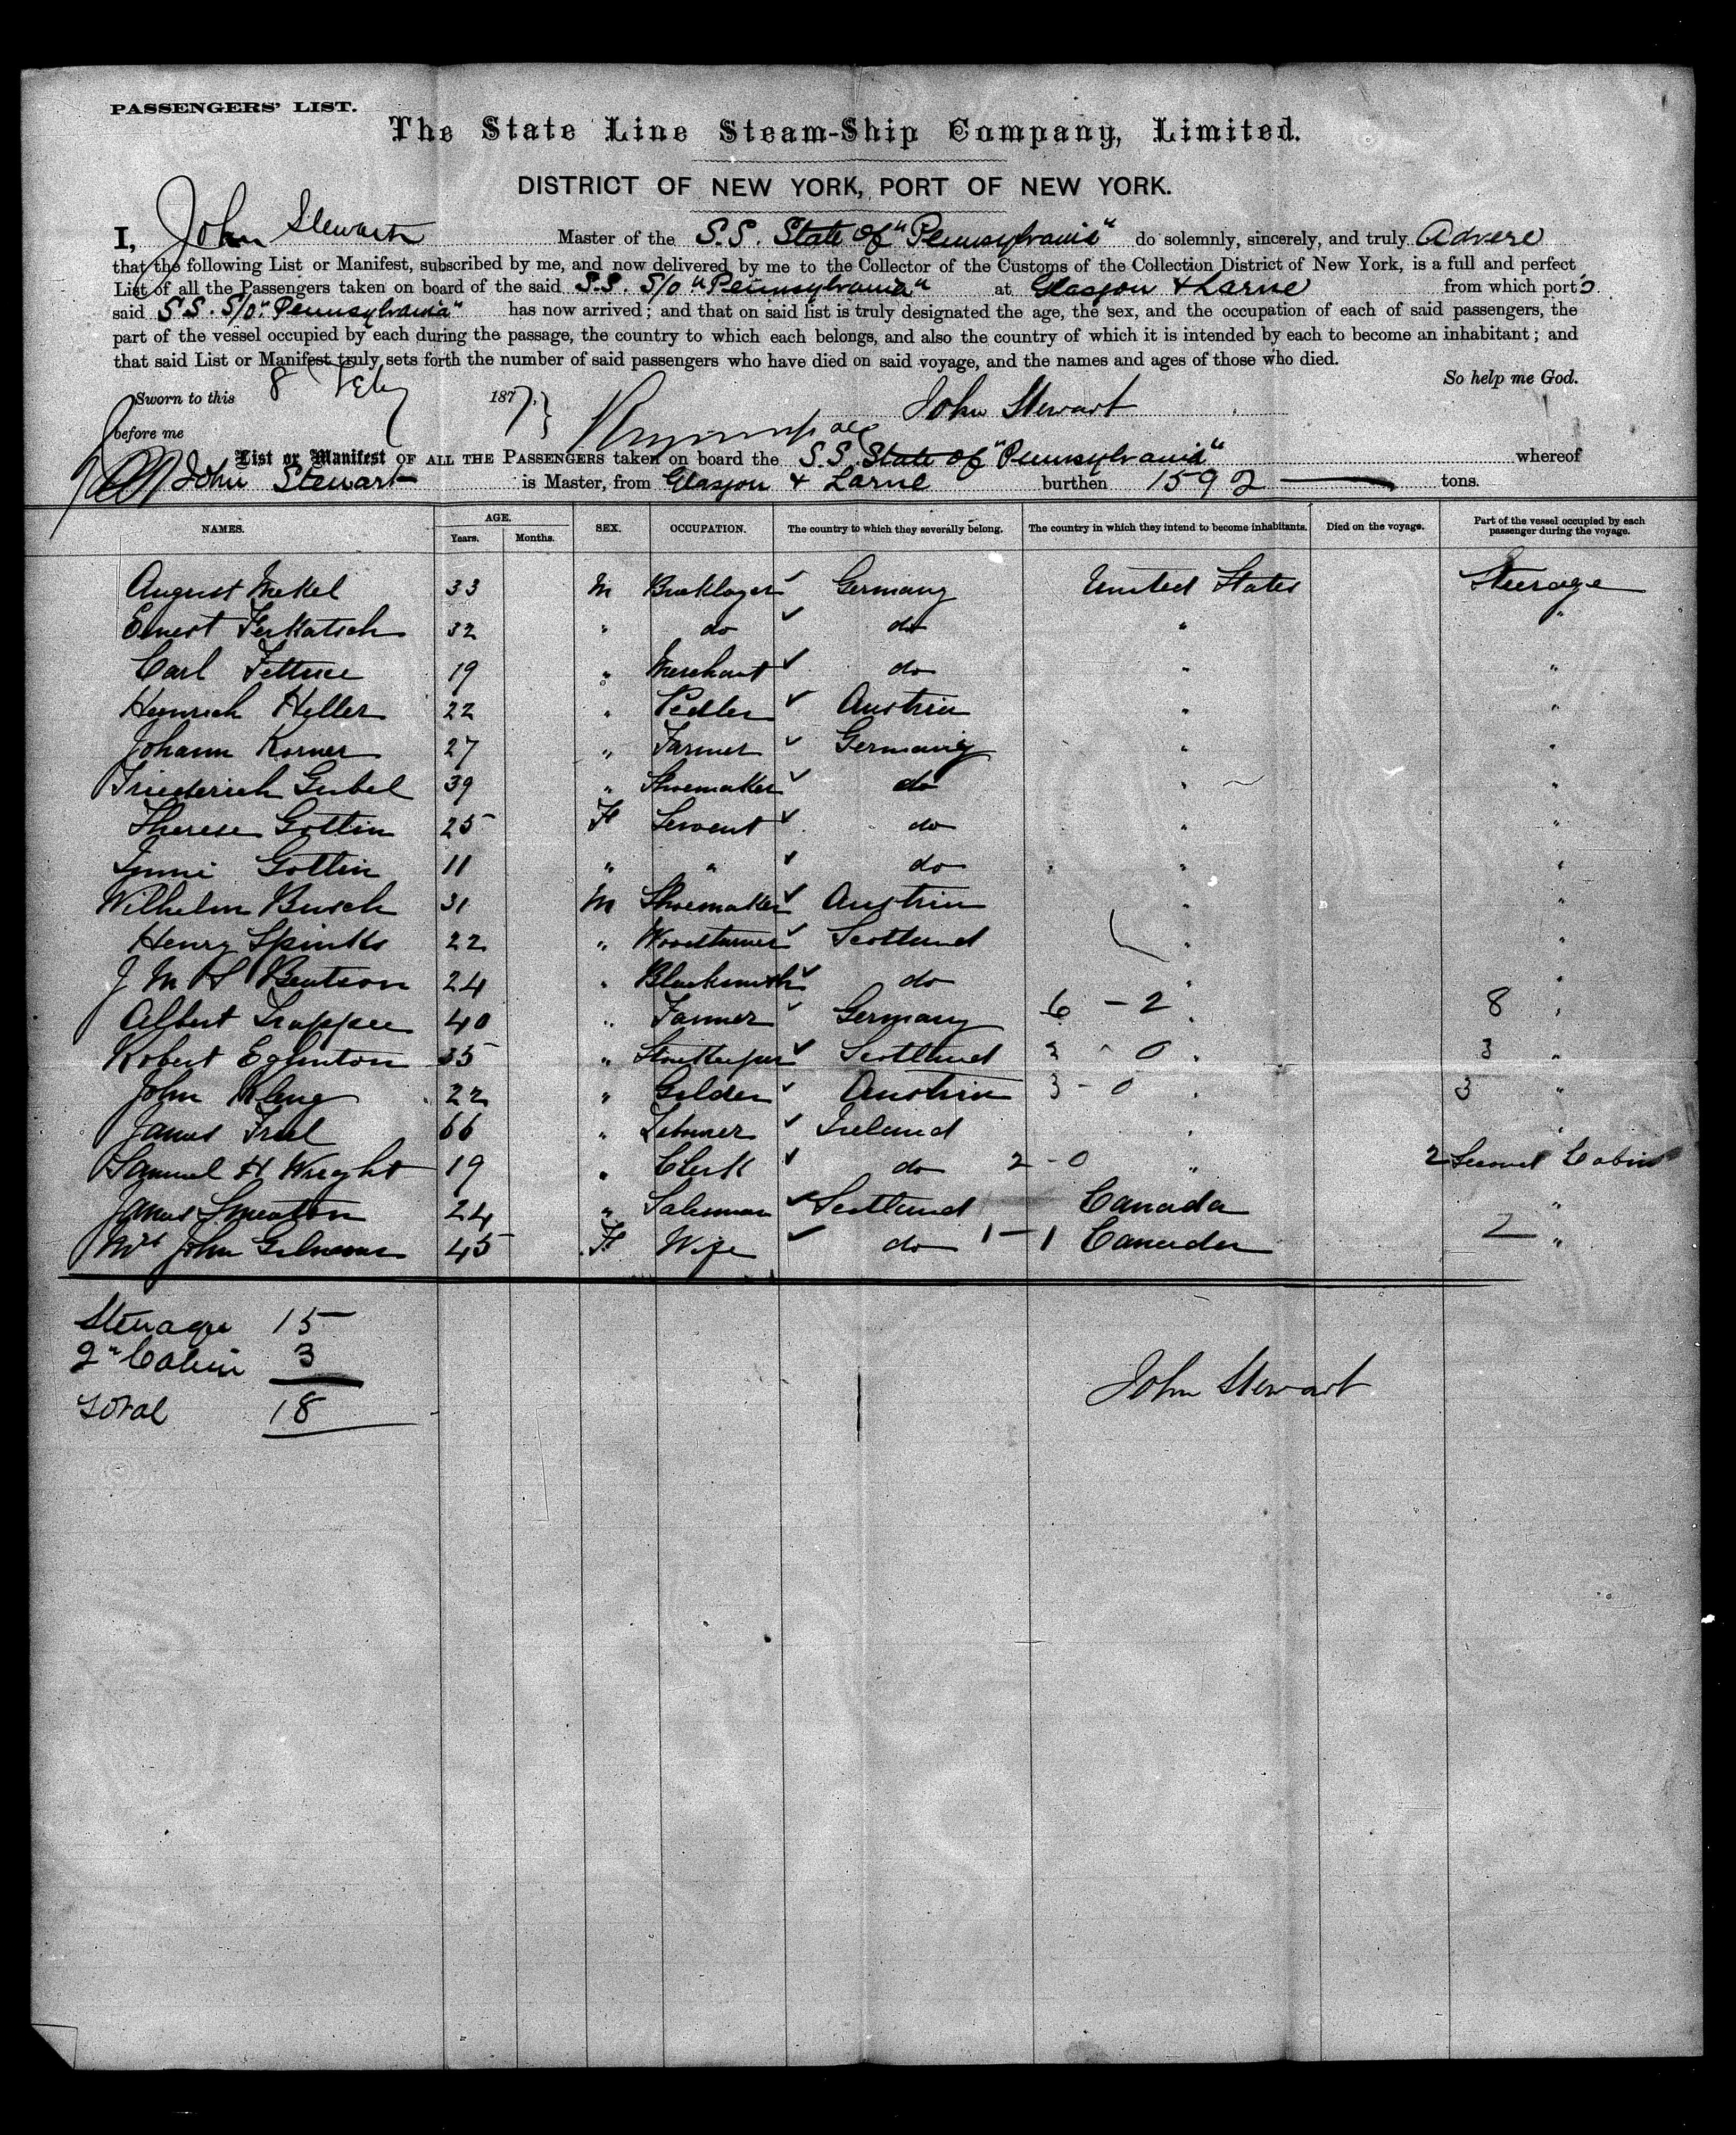 PASSENGERS' LIST.
The State Line Steam-Ship Company, Limited.
DISTRICT OF NEW YORK, PORT OF NEW YORK.
I, John Stewart Master of the S.S. State of "Pennsylvania" do solemnly, sincerely, and truly
that the following List or Manifest, subscribed by me, and now delivered by me to the Collector of the Customs of the Collection District of New York, is a full and perfect
List of all the Passengers taken on board of the said S.S. S/o "Pennsylvania" at Glasgow & Larne from which port
said S.S. S/o "Pennsylvania" has now arrived; and that on said list is truly designated the age, the sex, and the occupation of each of said passengers, the
part of the vessel occupied by each during the passage, the country to which each belongs, and also the country of which it is intended by each to become an inhabitant; and
that said List or Manifest truly sets forth the number of said passengers who have died on said voyage, and the names and ages of those who died.
So help me God.
Sworn to this 8 Feby 1877. John Stewart
before me
List or Manifest OF ALL THE PASSENGERS taken on board the S.S. State of "Pennsylvania" whereof
John Stewart is Master, from Glasgow & Larne burthen 1592 tons.
NAMES. AGE. Years. Months. SEX. OCCUPATION. The country to which they severally belong. The country in which they intend to become inhabitants. Died on the voyage. Part of the vessel occupied by each passenger during the voyage.
August 33 M Bricklayer Germany United States Steerage
Ernest 32 " do do " "
Carl 19 " Merchant do " "
Heinrich Heller 22 " Pedler Austria " "
Johann Korner 27 " Farmer Germany " "
Friederich 39 " Shoemaker do " "
Therese Gottin 25 F Servent do " "
Gottin 11 " " do " "
Wilhelm Busch 31 M Shoemaker Austria " "
Henry Spinks 22 " Woodturner Scotland " "
J M Beatson 24 " Blacksmith do " "
Albert 40 " Germany 6 - 2 " 8 "
Robert Eglinton 35 " Storekeeper Scotland 3 - 0 " 3 "
John Kling 22 " Gilder Austria 3 - 0 " 3 "
James Friel 66 " Labourer Ireland " "
Samuel H Wright 19 " Clerk do 2 - 0 " 2 Second Cabin
James Smeaton 24 " Salesman Scotland Canada "
Mrs John 45 F Wife do 1 - 1 Canada 2 "
Steerage 15
2" Cabin 3
Total 18
John Stewart